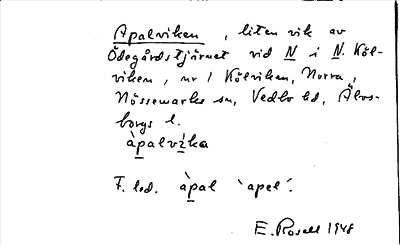 Apalviken, liten vik av
Ödegårdstjärnet vid N i N. Köl-
viken, nr 1 Kölviken, Norra,
Nössemarks sn, Vedbo hd, Älvs-
borgs l.
àpalvika
F. led. àpal 'apel'.
E. Rosell 1948